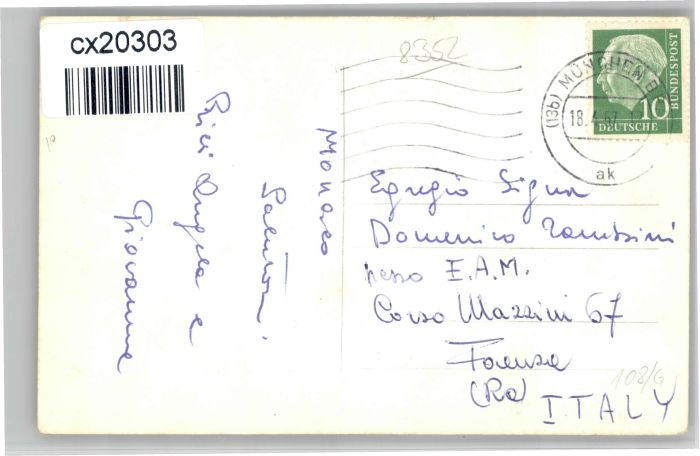 cx20303
8352
(13b) MÜNCHEN
18.4.57
ak
10
DEUTSCHE
BUNDESPOST
Monaco
Saluti
Angela e
Giovanna
Egregio Signor
Domenico
presso E.A.M.
Corso Mazzini 67
Faenza
(Ra)
ITALY
108/G